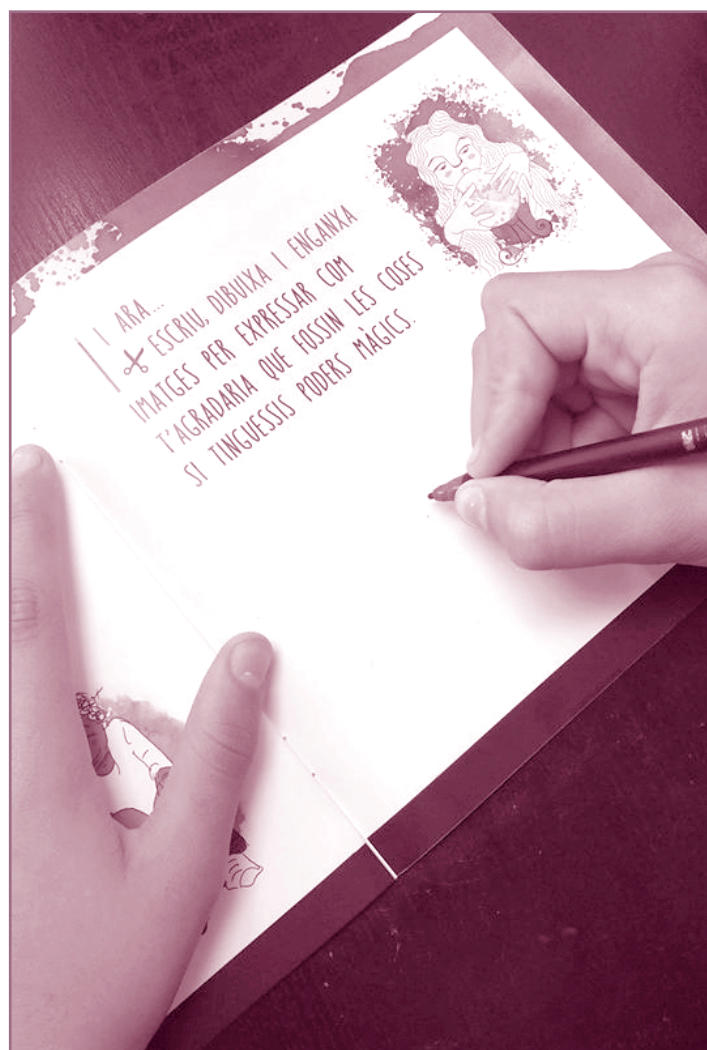 I ARA...
ESCRIU, DIBUIXA I ENGANXA
IMATGES PER EXPRESSAR COM
T'AGRADARIA QUE FOSSIN LES COSES
SI TINGUESSIS PODERS MÀGICS.